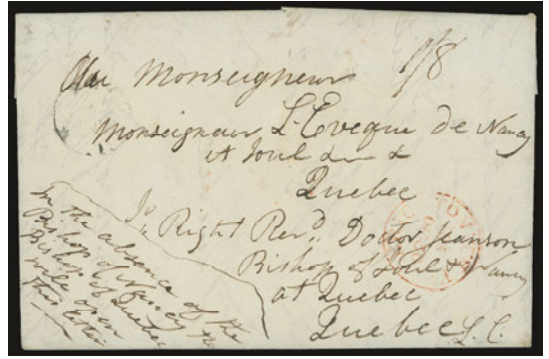 Monseigneur
1/8
Monseigneur L'Eveque de Nancy
et Toul & &
Quebec
To
Right Revd. Doctor Jeanson
Bishop of Toul & Nancy
at Quebec
Quebec L. C.
In the absence of the
Bishop of Nancy the
Bishop of Quebec
will open
this letter